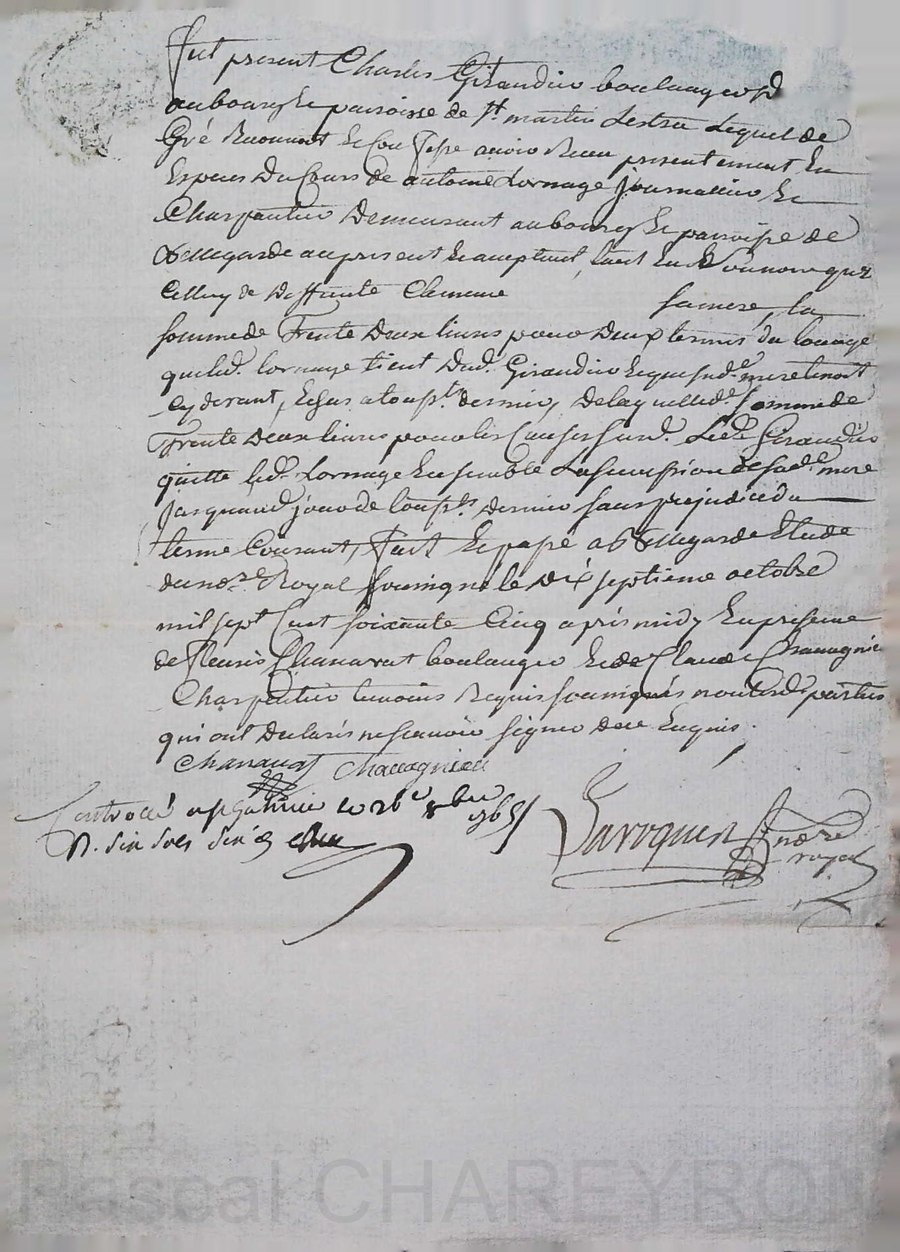 fut present Charles Giraudier boulanger d
au bourg & paroisse de St. martin Lestra Lequel de
Gré Reconnoit & Confesse avoir Receu presentement En
Especes Du Cours de antoine Lornage journallier &
Charpentier Demeurant au bourg & paroisse de
Bellegarde au present & acceptant, tant En Son nom que
Celluy de Deffunte Clemence
sa mere, la
somme de Trente Deux livres pour Deux termes du louage
que led. Lornage tient Dud. Giraudier & que sud. mere tenoit
cy devant, Echus a toupts. dernier, De laquelle d. somme de
Trente Deux livres pour les Causes sud. Led. Giraudier
quitte led. Lornage Ensemble La succession de sad. mere
jusquaud. jour de toupts. Dernier sans prejudice du
terme Courant, fait & passé a Bellegarde Etude
du nore. Royal soussigné le Dix septieme octobre
mil sept Cent soixante Cinq apres midy En presence
de fleuris Chanavat boulanger & de Claude Chavagnieu
Charpentier temoins Requis soussignés non lesd. parties
qui ont Declarés ne scavoir signer de ce Enquis.
Chanavat Chavagnieu
Controllé a st Galmier le 26e 8bre 1765
R. six sols six d
Laroquen
Nore
royal
Pascal CHAREYRON